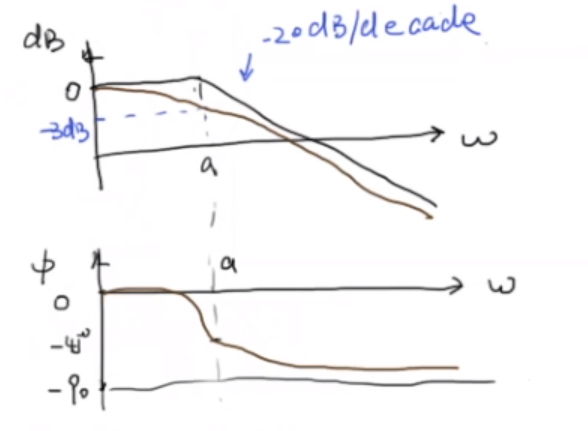 dB
-20dB/decade
0
-3dB
ω
a
φ
a
ω
0
-45
-90